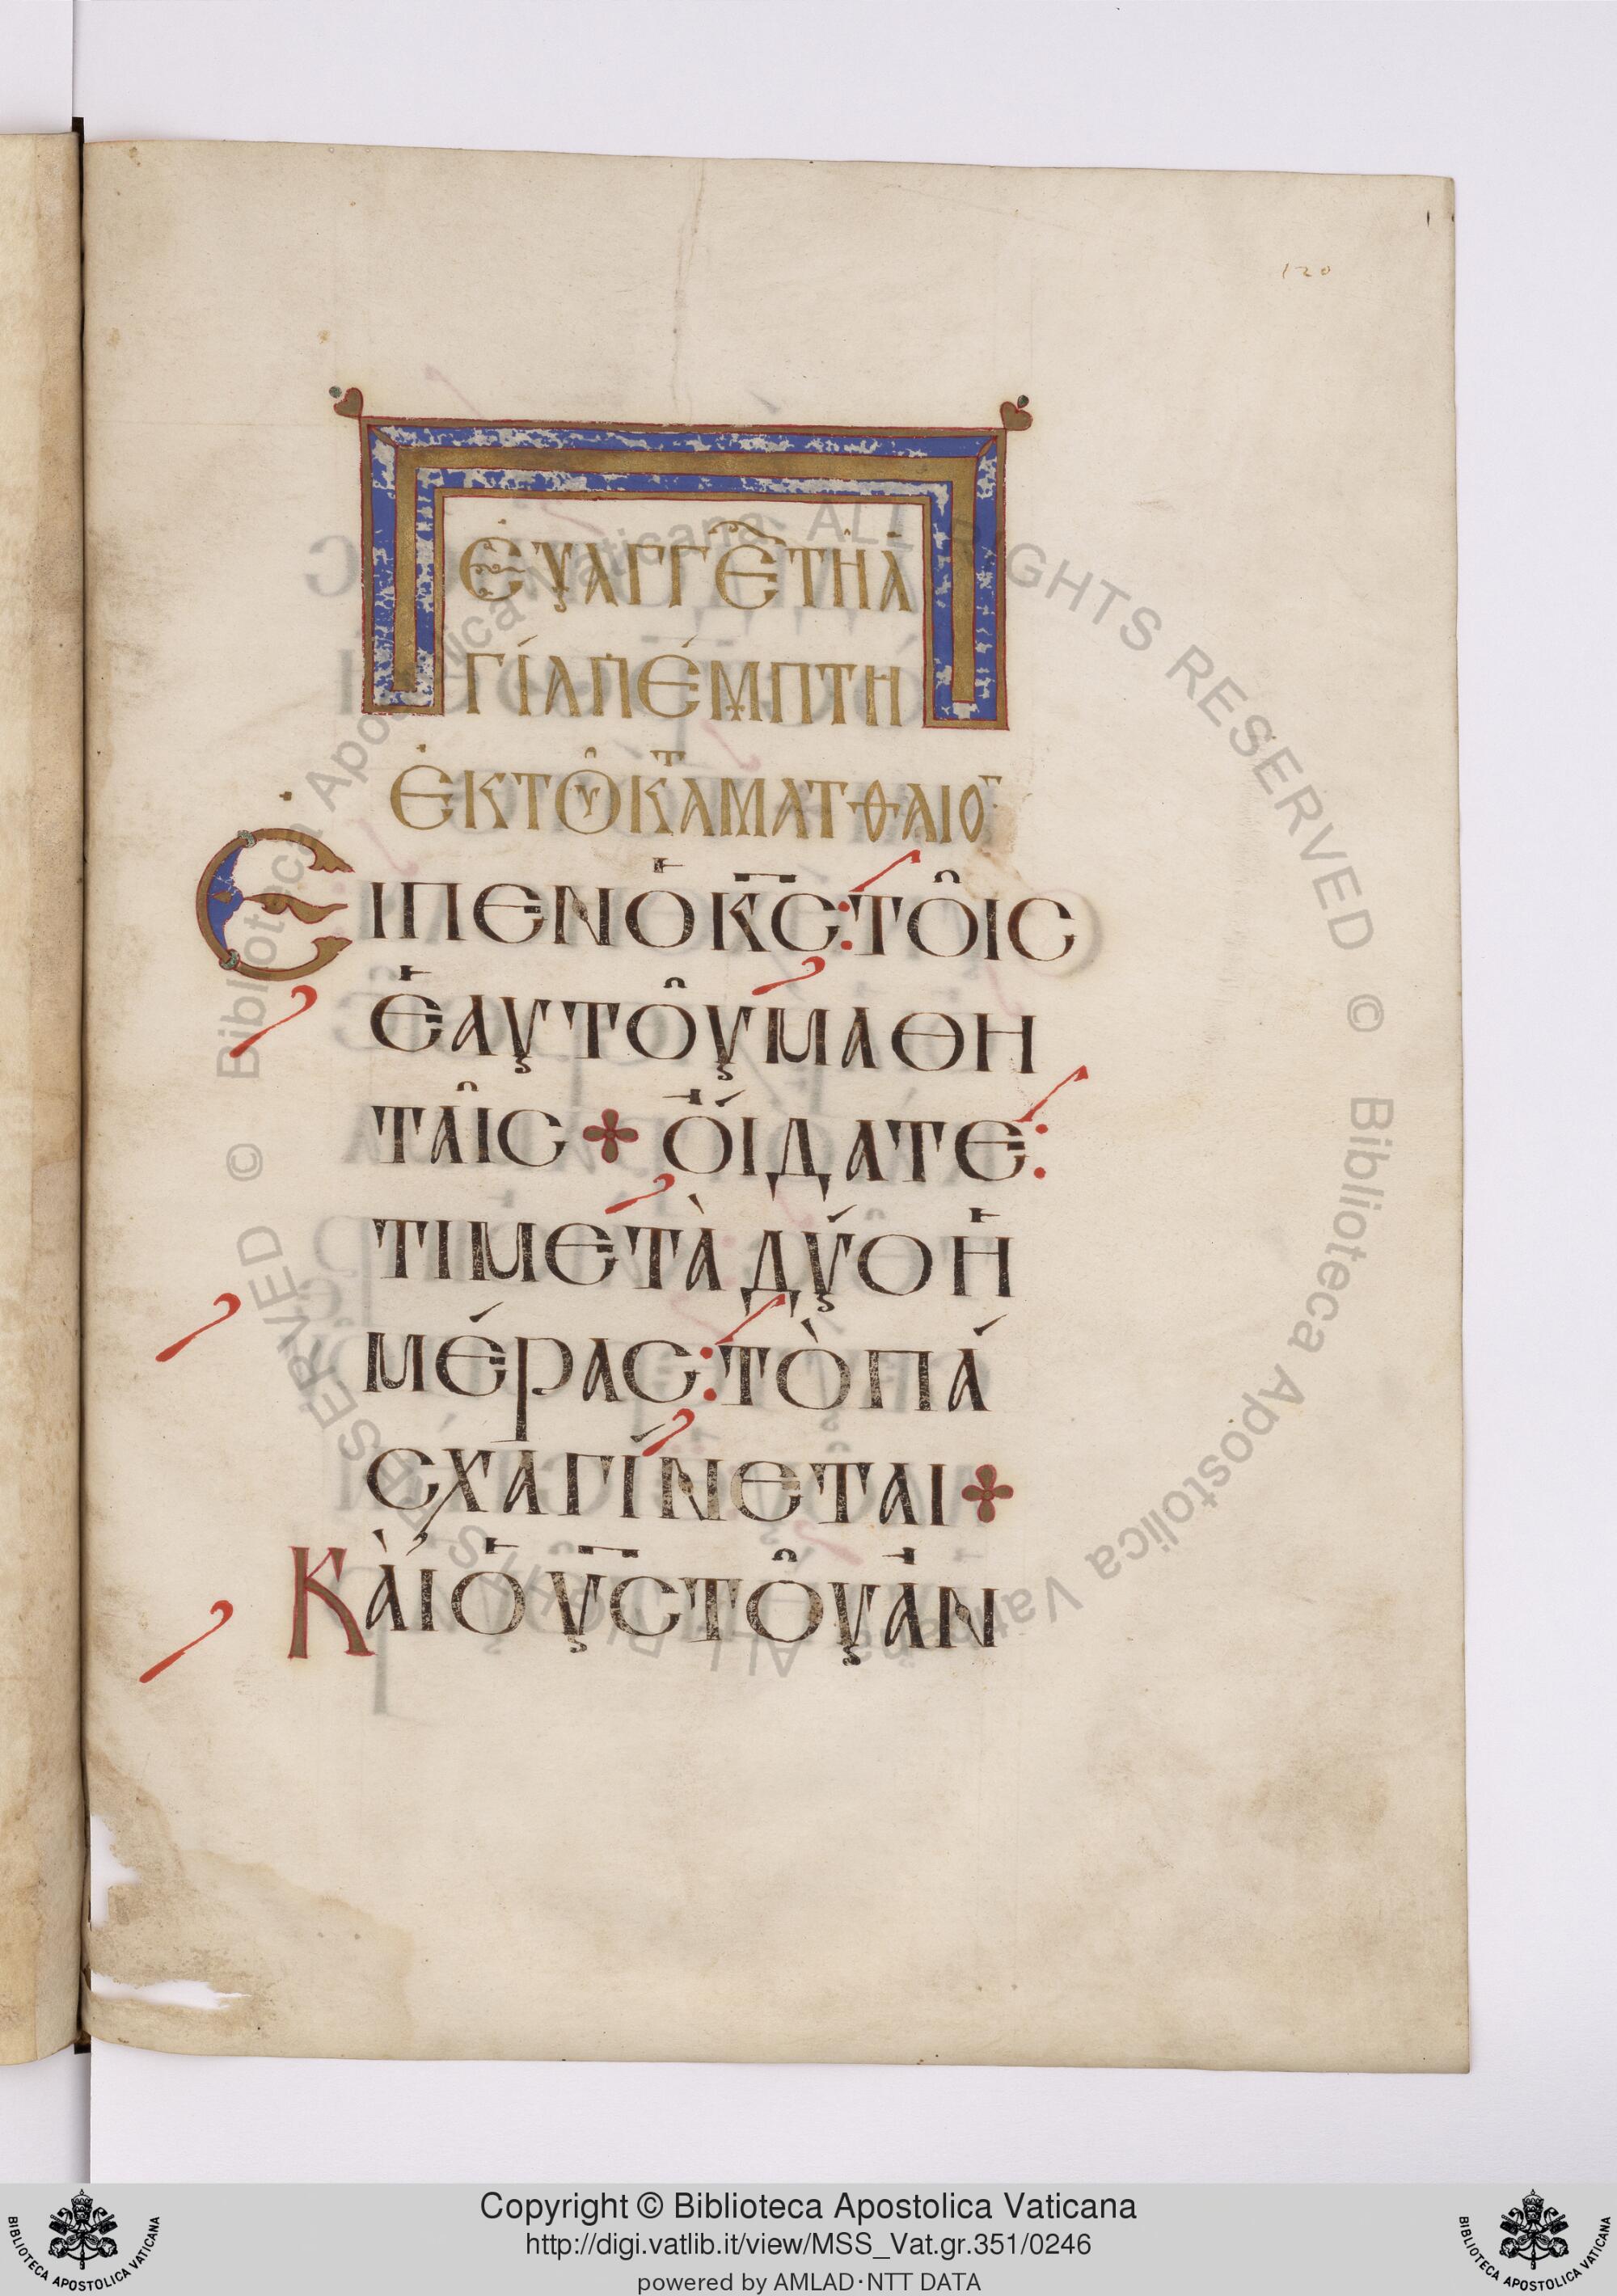 120
ἘΥΑΓΓΕ͂ΤΗ͂Α
ΓΊΑΠΈΜΠΤΗ
ἘΚΤΟῦΚΤΑΜΑΤΘΑΙΟ
ΕΙΠΕΝὉΚ̅Ϲ̅:ΤΟΙ͂Ϲ
ἙΑΥΤΟΥ͂ΜΑΘΗ
ΤΑΙ͂Ϲ ✤ ὍΙΔΑΤΕ:
ΤΙΜΕΤᾺΔΎΟἩ
ΜΈΡΑϹ:ΤῸΠΆ
ϹΧΑΓΊΝΕΤΑΙ ✤
ΚᾺΙὉΥ̅Ϲ̅ΤΟΥ͂ἈΝ
© Biblioteca Apostolica Vaticana ALL RIGHTS RESERVED © Biblioteca Apostolica Vaticana ALL RIGHTS RESERVED
BIBLIOTECA APOSTOLICA VATICANA
Copyright © Biblioteca Apostolica Vaticana
http://digi.vatlib.it/view/MSS_Vat.gr.351/0246
powered by AMLAD·NTT DATA
BIBLIOTECA APOSTOLICA VATICANA